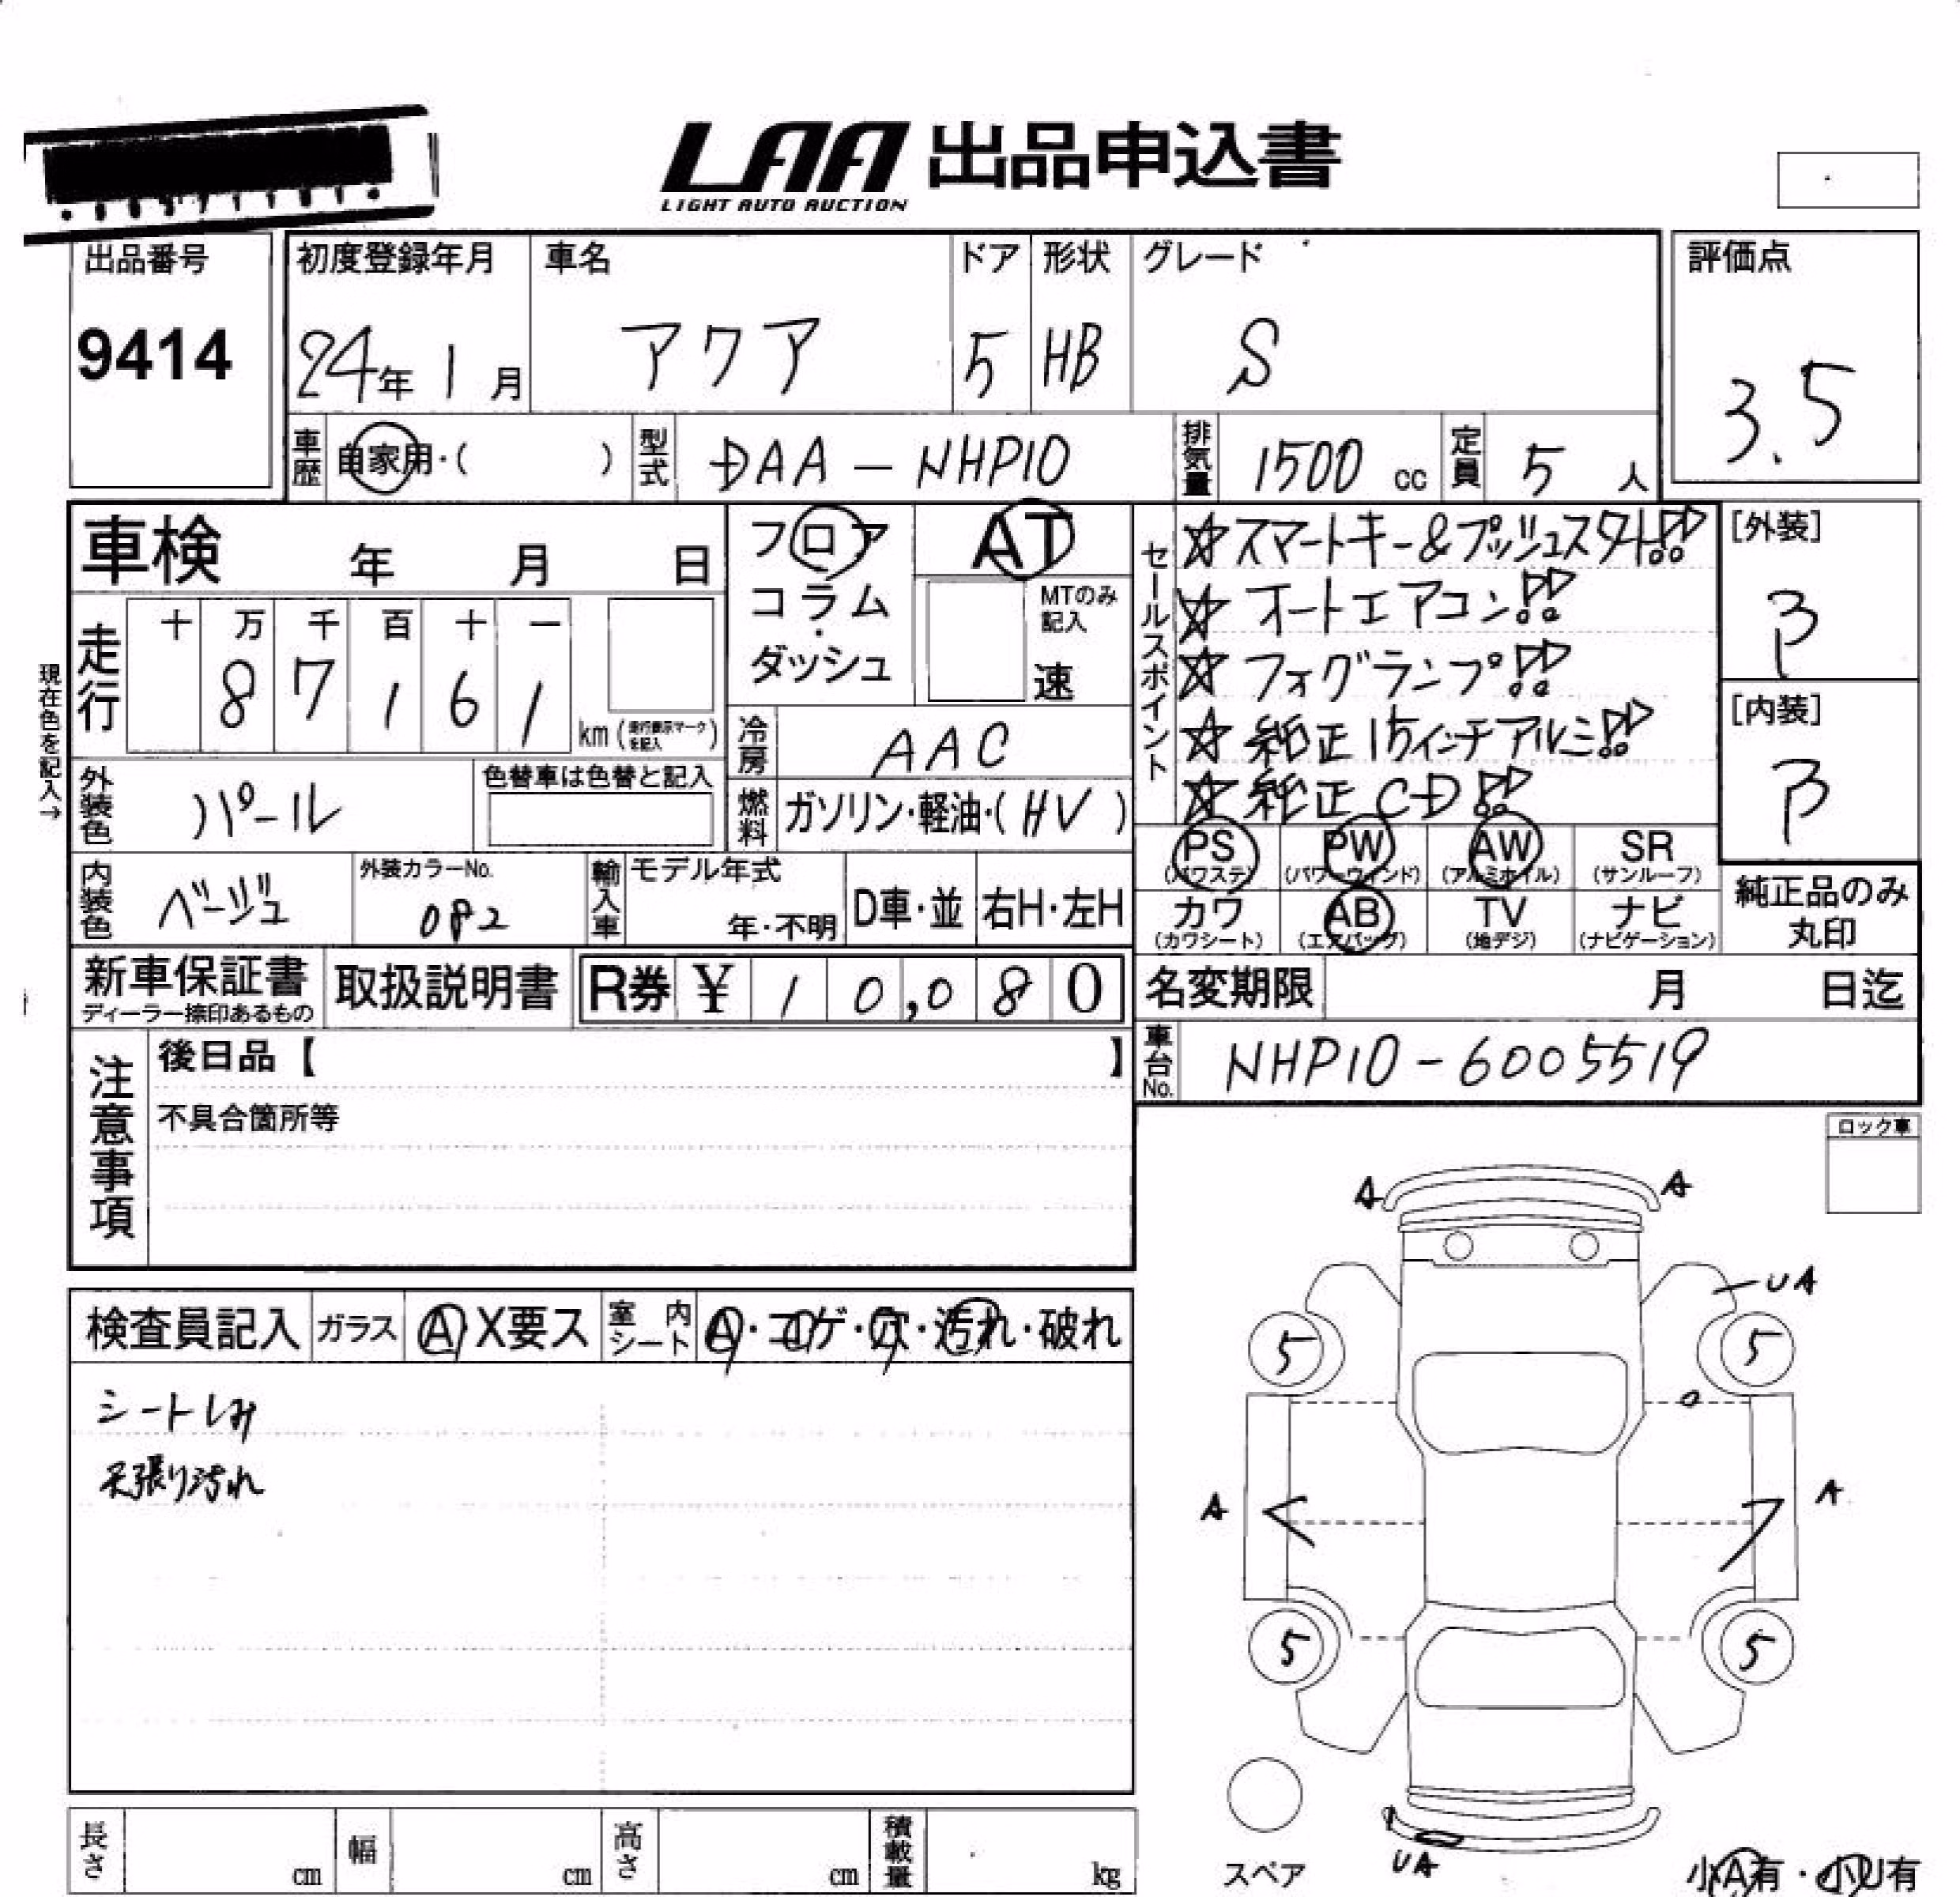 LAA 出品申込書
LIGHT AUTO AUCTION
出品番号
9414
初度登録年月
24年 1月
車名
アクア
ドア
5
形状
HB
グレード
S
評価点
3.5
車歴
自家用・( )
型式
DAA-NHP10
排気量
1500 cc
定員
5 人
車検 年 月 日
フロア
コラム
・
ダッシュ
AT
MTのみ
記入
速
セールスポイント
☆スマートキー&プッシュスタート!!
☆オートエアコン!!
☆フォグランプ!!
☆純正15インチアルミ!!
☆純正CD!!
[外装]
B
[内装]
B
現在色を記入→
走行
十 万 千 百 十 一
8 7 1 6 1
km (走行表示マークを記入)
冷房
AAC
外装色
パール
色替車は色替と記入
燃料
ガソリン・軽油・(HV)
PS
(パワステ)
PW
(パワーウィンド)
AW
(アルミホイル)
SR
(サンルーフ)
カワ
(カワシート)
AB
(エアバッグ)
TV
(地デジ)
ナビ
(ナビゲーション)
純正品のみ
丸印
内装色
ベージュ
外装カラーNo.
082
輸入車
モデル年式
年・不明
D車・並
右H・左H
新車保証書
ディーラー捺印あるもの
取扱説明書
R券 ¥ 10,080
名変期限 月 日迄
車台No.
NHP10-6005519
注意事項
後日品【 】
不具合箇所等
ロック車
検査員記入
ガラス
A X要ス
室内シート
A・コゲ・穴・汚れ・破れ
シートしみ
天張り汚れ
A
A
UA
5
5
A
A
5
5
UA
スペア
小A有・小U有
長さ cm
幅 cm
高さ cm
積載量 kg